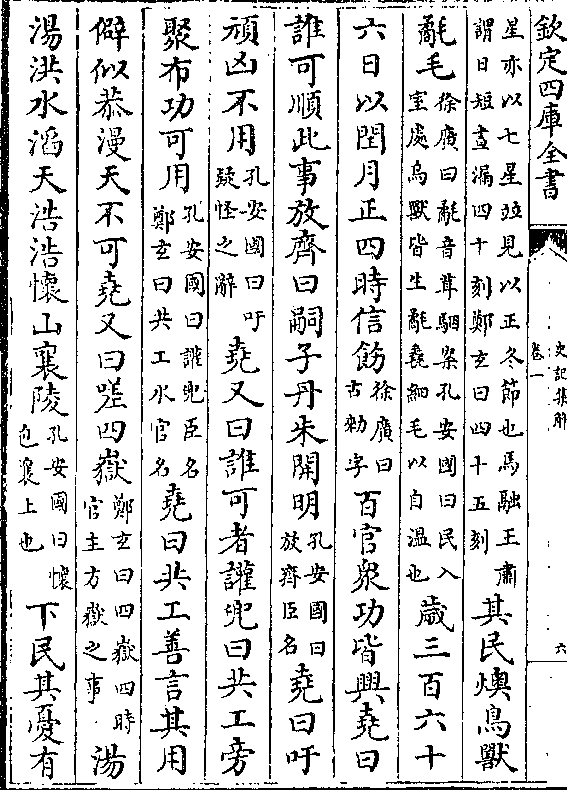 欽定四庫全書
史記集解
卷一
六
星亦以七星竝見以正冬節也馬融王肅
謂日短晝漏四十刻鄭玄曰四十五刻
其民燠鳥獸
氄毛
徐廣曰氄音茸駰案孔安國曰民入
室處鳥獸皆生氄毳細毛以自溫也
歲三百六十
六日以閏月正四時信飭
徐廣曰
古勑字
百官衆功皆興堯曰
誰可順此事放齊曰嗣子丹朱開明
孔安國曰
放齊臣名
堯曰吁
頑凶不用
孔安國曰吁
疑怪之辭
堯又曰誰可者讙兜曰共工旁
聚布功可用
孔安國曰讙兜臣名
鄭玄曰共工水官名
堯曰共工善言其用
僻似恭漫天不可堯又曰嗟四嶽
鄭玄曰四嶽四時
官主方嶽之事
湯
湯洪水滔天浩浩懷山襄陵
孔安國曰懷
包襄上也
下民其憂有